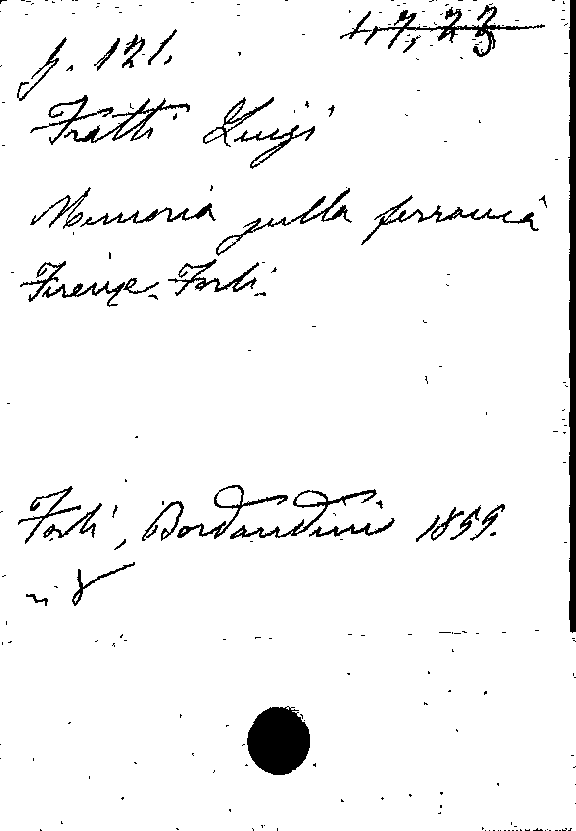 4,7,23
p. 121.
Fratti Luigi
Memoria sulla ferrovia
Firenze-Forlì.
Forlì, Bordandini 1859.
in 8